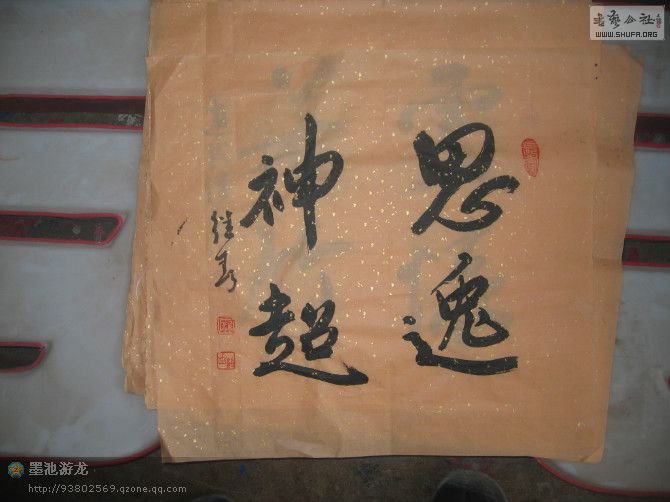 思逸
神超
继春
书艺公社
WWW.SHUFA.ORG
墨池游龙
http://93802569.qzone.qq.com